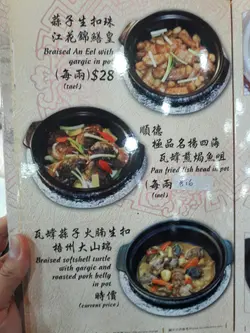 蒜子生扣珠
江花錦鱔皇
Braised An Eel with
gargic in pot
(每兩)$28
(tael)
順德
極品名揚四海
瓦蜂煎焗魚咀
Pan fried fish head in pot
每兩
(tael)
瓦蜂蒜子火腩生扣
揚州大山瑞
Braised softshell turtle
with gargic and
roasted pork belly
in pot
時價
(current price)